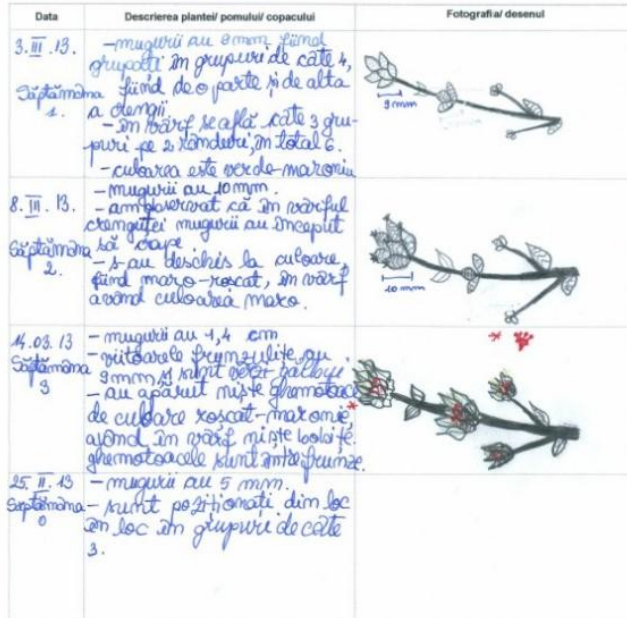 Data
Descrierea plantei/ pomului/ copacului
Fotografia/ desenul
3.III.13.
Săptămâna
1.
-mugurii au 9 mm fiind
grupați în grupuri de câte 4,
fiind de o parte și de alta
a crengii
-în vârf se află câte 3 gru-
puri pe 2 rânduri, în total 6.
-culoarea este verde-maroniu
9 mm
8.III.13.
Săptămâna
2.
-mugurii au 10 mm.
-am observat că în vârful
crenguței mugurii au început
să crape
-s-au deschis la culoare,
fiind maro-roșcat, în vârf
având culoarea maro.
10 mm
14.03.13
Săptămâna
3
-mugurii au 1,4 cm
-viitoarele frunzulițe au
9mm și sunt verzi gălbui
-au apărut niște ghemotoace
de culoare roșcat-maronie,
având în vârf niște bobițe.
ghemotoacele sunt între frunze.
25.II.13
Săptămâna
0
-mugurii au 5 mm.
-sunt poziționați din loc
în loc în grupuri de câte
3.